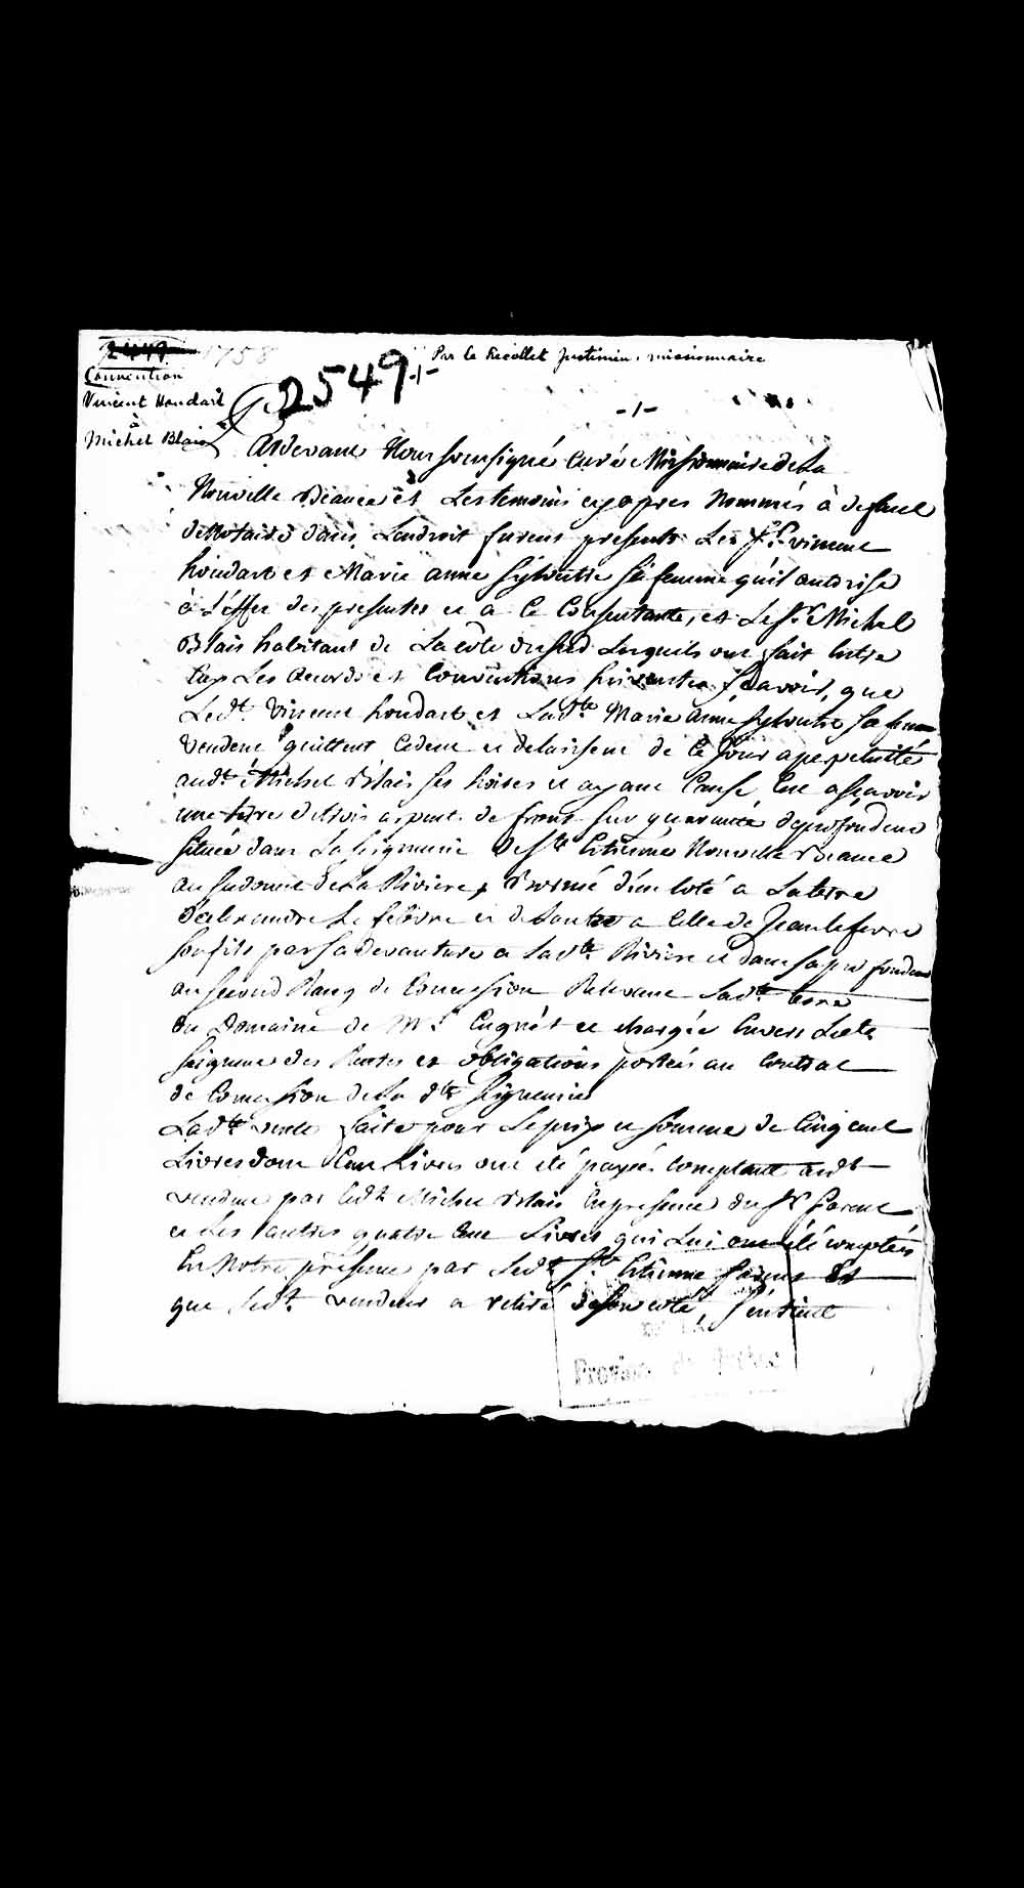 2449 1758
Convention
Vincent Houdart
à
Michel Blais
2549
Par le Récollet Justinien, missionnaire
-1-
Pardevant Nous soussigné Curé Missionnaire de La
Nouvelle Beauce et Les temoins cy apres Nommés à defaut
de Notaire dans Lendroit furent presents Les Sr. vincent
houdart et Marie anne Sylvestre sa femme qu'il autorise
à L'effet des presentes et a Ce Consentante, et Le Sr. Michel
Blais habitant de La cote du sud Lesquels ont fait Entre
Eux Les acords et Conventions suivantes Scavoir, que
Ledt. Vincent houdart et Ladte. Marie Anne Sylvestre sa femme
Vendent quittent Cedent et delaissent de Ce jour a perpetuité
audt. Michel Blais ses hoires et ayant Cause C'est ascavoir
une terre de trois arpents de front sur quarante de profondeur
située dans La seigneurie de Ste. Etienne Nouvelle Beauce
au sudouest de La Riviere, Borné d'un Coté a La terre
d'alexandre Le febvre et de Lautre a Celle de Jean lefevre
son fils par sa devanture a Ladte. Riviere et dans sa profondeur
au second Rang de Concession Relevant Ladte. terre
du Domaine de Mr. Cugnét et chargée Envers Ledt.
Seigneur des Rentes et obligations portées au Contrat
de Concession de La dte. Seigneurie
Ladte. vente faite pour Le prix et somme de Cinq cent
Livres dont Cent Livres ont été payés Comptant audt
vendeur par Ledt. Michel Blais En presence du Sr. parent
et Les autres quatre Cent Livres qui Lui ont été comptés
En Notre presence par Ledt. Sr. Etienne parent Et
que Ledt. vendeur a retiré de son coté,
Province de